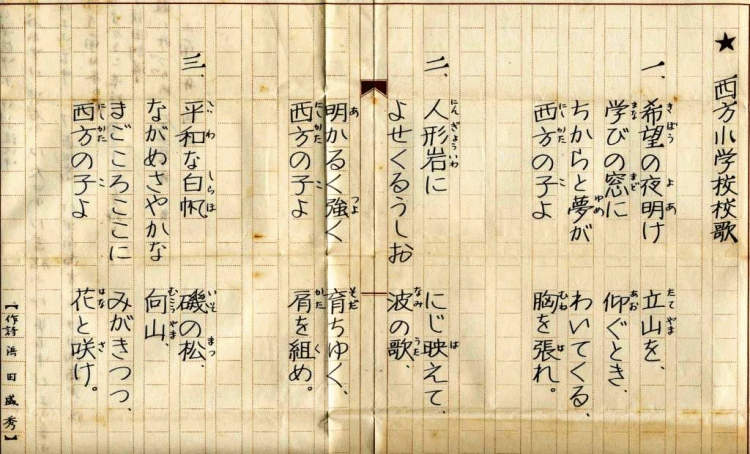 ★ 西方小学校校歌
一、希望の夜明け 立山を、
学びの窓に 仰ぐとき、
ちからと夢が わいてくる、
西方の子よ 胸を張れ。
二、人形岩に にじ映えて、
よせくるうしお 波の歌、
明かるく強く 育ちゆく、
西方の子よ 肩を組め。
三、平和な白帆 磯の松、
ながめさやかな 向山、
まごころここに みがきつつ、
西方の子よ 花と咲け。
【作詩 浜田盛秀】